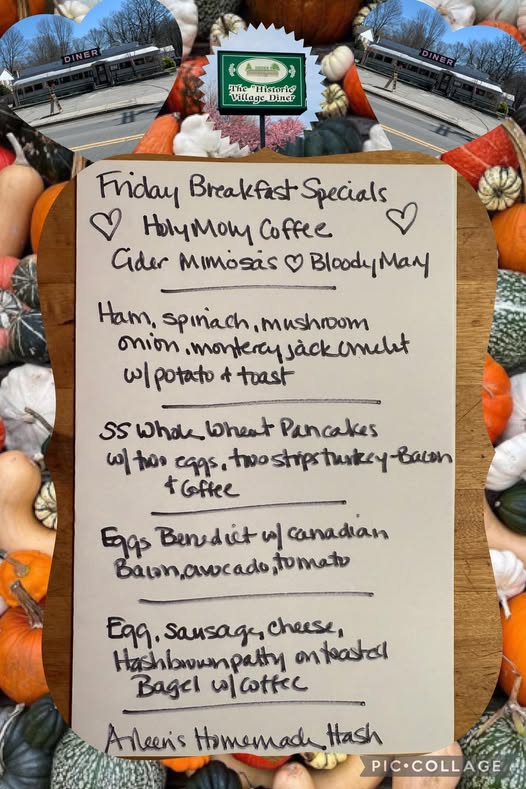 DINER
DINER
The "Historic"
Village Diner
Friday Breakfast Specials
♡ Holy Moly Coffee ♡
Cider Mimosas ♡ Bloody Mary
Ham, spinach, mushroom
onion, monterey jack omelet
w/ potato + toast
SS Whole Wheat Pancakes
w/ two eggs, two strips turkey-Bacon
+ Coffee
Eggs Benedict w/ canadian
Bacon, avocado, tomato
Egg, sausage, cheese,
Hashbrown patty on toasted
Bagel w/ coffee
Arleen's Homemade Hash
PIC•COLLAGE